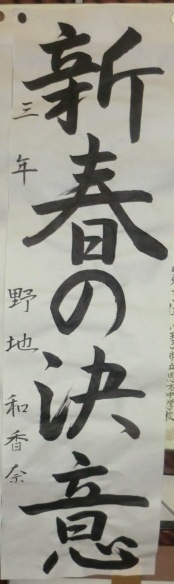 新春の決意
三年 野地和香奈